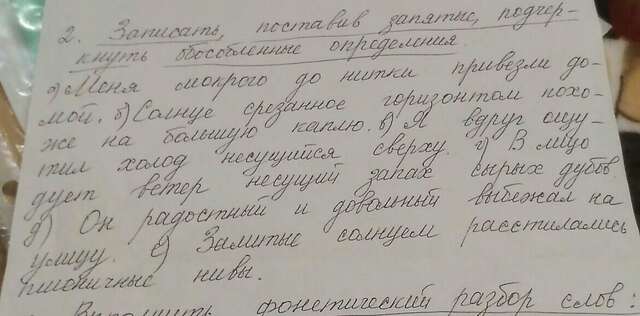 2. Записать, поставив запятые, подчер-
кнуть обособленные определения.
а) Меня мокрого до нитки привезли до-
мой. б) Солнце срезанное горизонтом похо-
же на большую каплю. в) Я вдруг ощу-
тил холод несущийся сверху. г) В лицо
дует ветер несущий запах сырых дубов.
д) Он радостный и довольный выбежал на
улицу. е) Залитые солнцем расстилались
пшеничные нивы.
Выполнить фонетический разбор слов: